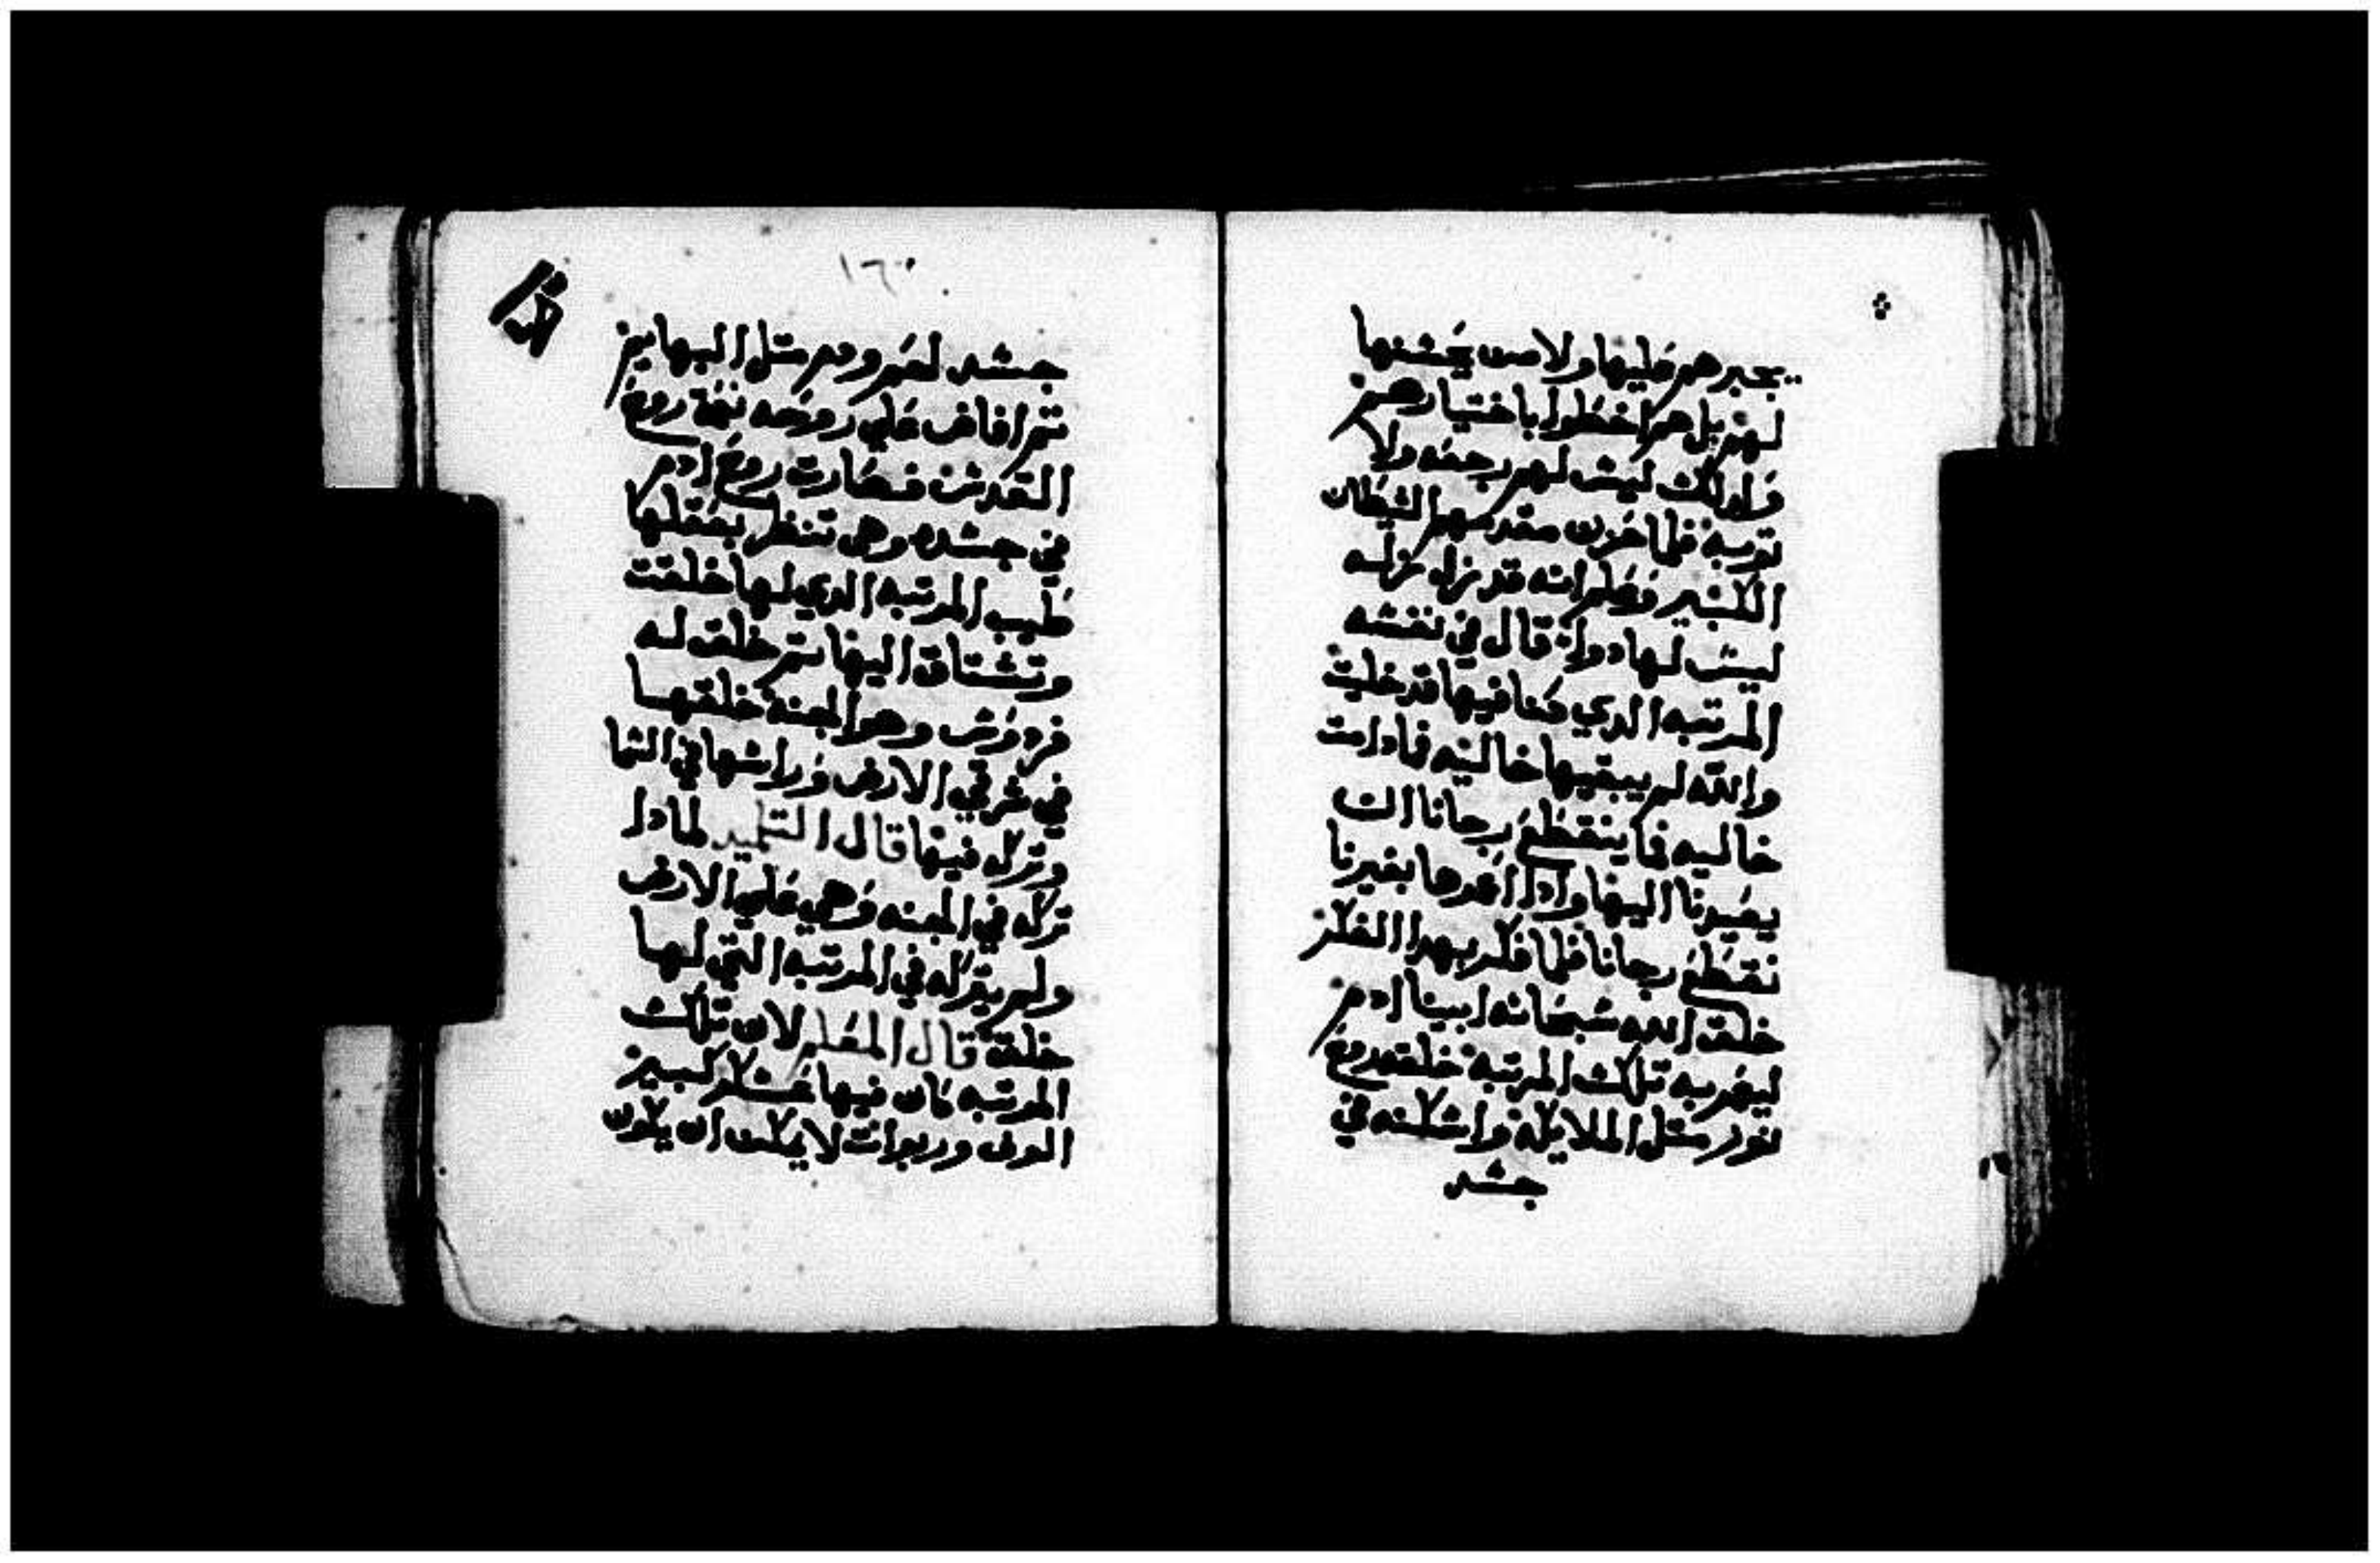 يجبرهم عليها ولا من يحسنها
لهم بل هم اخطوا باختيارهم
واولئك ليس لهم رجعه ولا
توبه فلما حزن مقدمهم الشيطان
الكبير وعلم انه قد نزل نزله
ليس لها دواة قال في نفسه
المرتبه الدي كنا فيها قد خليت
والله لم يبقيها خاليه فمادامت
خاليه فما ينقطع رجانا ان
يعيرنا اليها وادا اعمرها بغيرنا
نقطع رجانا فلما فكر بهدا الفكر
خلق الله سبحانه ابينا ادم
ليعمر به تلك المرتبة خلقه روح
نور متل الملايكه واسكنه في
جسد
١٦٠
جسد لحم ودم متل البهايم
تم افاض علي روحه نعمة روح
القدس فصارت روح ادم
في جسده وهي تنظر بعقلها
طيب المرتبه الدي لها خلقت
وتشتاق اليها تم خلق له
فردوس وهو الجنة خلقها
في شرقي الارض وراسها في السما
وتركه فيها قال التلميد لمادا
تركه في الجنه وهي علي الارض
ولم يتركه في المرتبه التي لها
خلقه قال المعلم لان تلك
المرتبه كان فيها عسكر كبير
الوف وربوات لا يمكن ان يكون